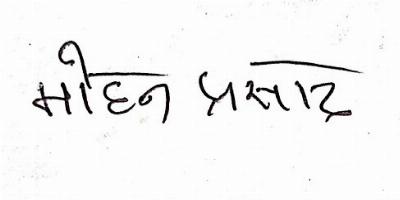 मोहन प्रसाद